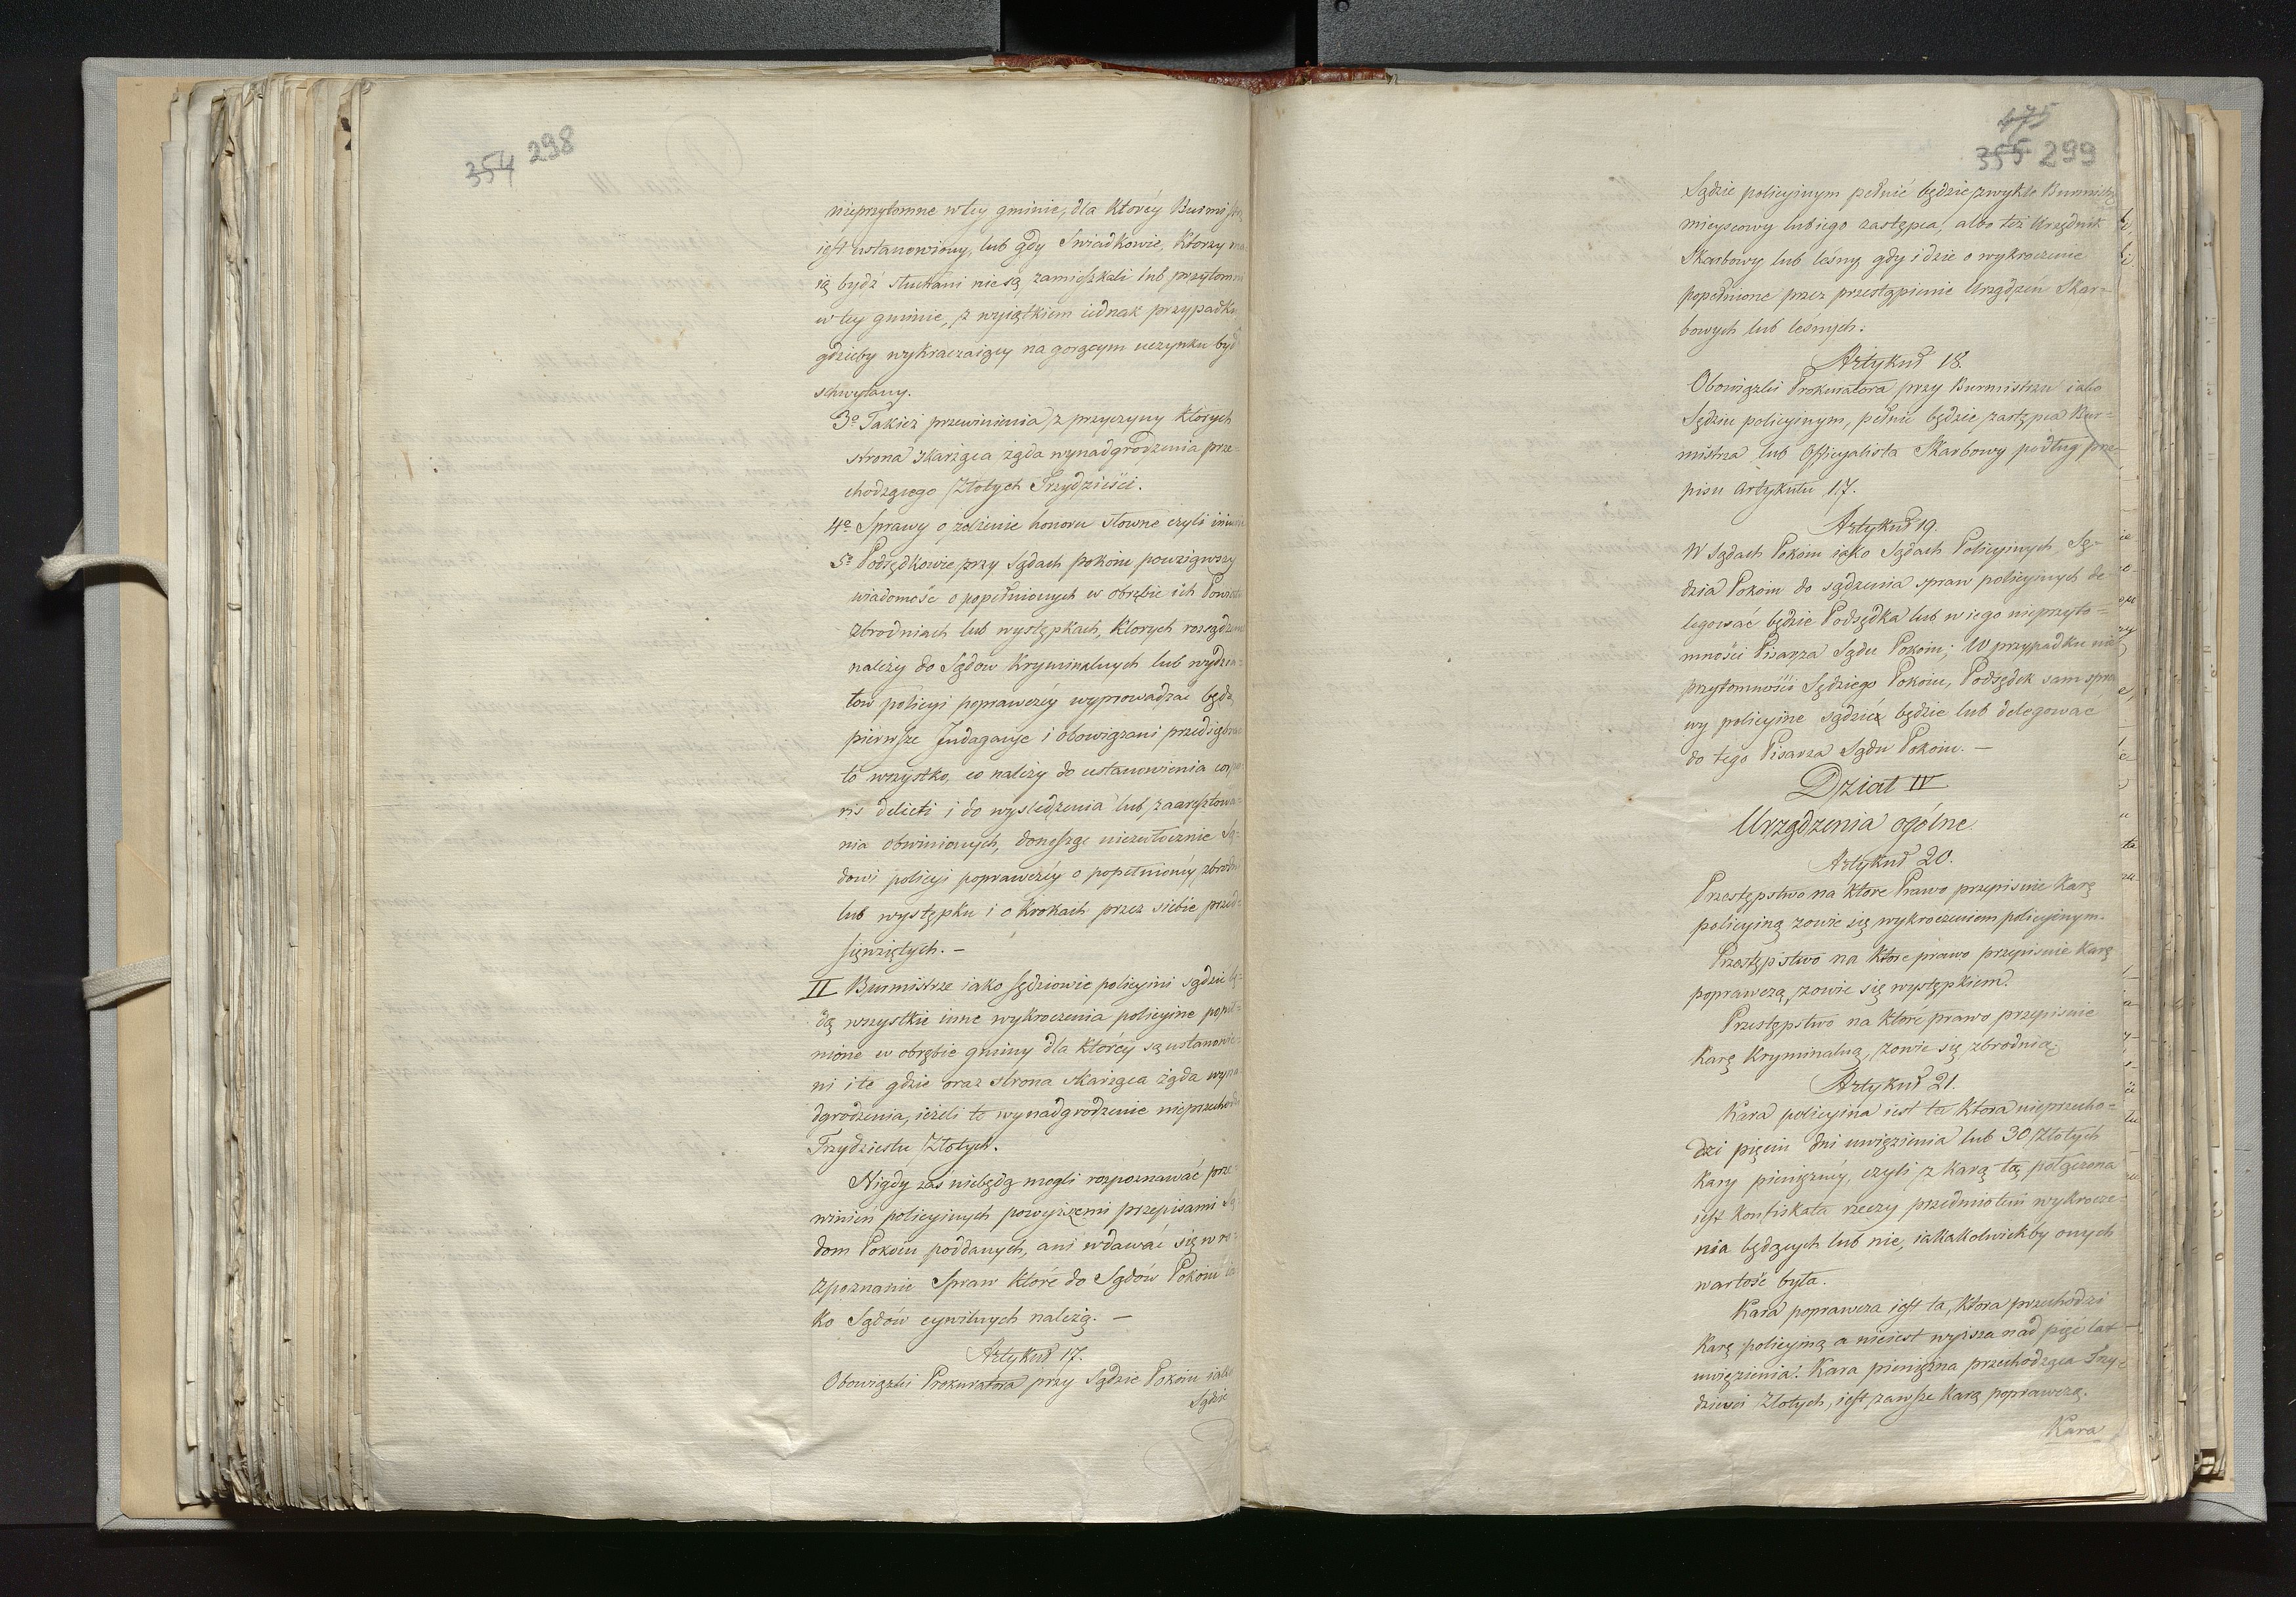 354 298
nieprzytomne w tey gminie, dla którey Burmistrz
iest ustanowiony, lub gdy Swiadkowie, którzy ma
ią bydź słuchani nie są zamieszkali lub przytomni
w tey gminie, z wyiątkiem iednak przypadku
gdzieby wykraczaiący na gorącym uczynku był
schwytany.
3o Takież przewinienia z przyczyny których
strona skarżąca żąda wynadgrodzenia prze-
chodzącego Złotych Trzydzieści.
4o Sprawy o zelżenie honoru słowne czyli
5o Podsędkowie przy Sądach pokoiu powziąwszy
wiadomość o popełnionych w obrębie ich Powiatu
zbrodniach lub występkach, których rozsądzenie
należy do Sądów Kryminalnych lub wydzia-
łów policyi poprawczéy wyprowadzać będą
pierwsze Indagacye i obowiązani przedsiębrać
to wszystko, co należy do ustanowienia corpo-
ris delicti i do wysledzenia lub zaaresztowa-
nia obwinionych, donosząc niezwłocznie Są-
dowi policyi poprawczéy o popełnionéy zbrodni
lub występku i o krokach przez siebie przed-
sięwziętych. —
II Burmistrze iako Sędziowie policyini sądzić bę-
dą wszystkie inne wykroczenia policyine popeł-
nione w obrębie gminy dla którey są ustanowie-
ni i te gdzie oraz strona skarżąca żąda wyna
dgrodzenia, ieżeli te wynadgrodzenie nieprzechodzi
Trzydziestu Złotych.
Nigdy zaś niebędą mogli rozpoznawać prze-
winień policyinych powyższemi przepisami Są
dom Pokoiu poddanych, ani wdawać się w ro-
zpoznanie Spraw które do Sądów Pokoiu ia
ko Sądów cywilnych należą. —
Artykuł 17.
Obowiązki Prokuratora przy Sądzie Pokoiu iako
Sądzie
475
355 299
Sądzie policyinym pełnić będzie zwykle Burmistrz
mieyscowy lub iego zastępca, albo też Urzędnik
Skarbowy lub leśny gdy idzie o wykroczenie
popełnione przez przestąpienie Urządzeń Skar-
bowych lub leśnych.
Artykuł 18.
Obowiązki Prokuratora przy Burmistrzu iako
Sędziu policyinym, pełnić będzie zastępca Bur-
mistrza lub Officyalista Skarbowy podług prze-
pisu Artykułu 17.
Artykuł 19.
W Sądach Pokoiu iako Sądach Policyinych, Sę-
dzia Pokoiu do sądzenia spraw policyinych de
legować będzie Podsędka lub w iego nieprzyto-
mności Pisarza Sądu Pokoiu; W przypadku nie
przytomności Sędziego Pokoiu, Podsędek sam spra
wy policyine sądzić będzie lub delegować
do tego Pisarza Sądu Pokoiu. —
Dział IV
Urządzenia ogólne.
Artykuł 20.
Przestępstwo na które Prawo przepisuie Karę
policyiną zowie się wykroczeniem policyinym.
Przestępstwo na które prawo przepisuie Karę
poprawczą, zowie się występkiem.
Przestępstwo na które prawo przepisuie
Karę Kryminalną, zowie się zbrodnią.
Artykuł 21.
Kara policyina iest ta która nieprzecho-
dzi pięciu dni uwięzienia lub 30 Złotych
Kary pieniężnéy, czyli z karą tą połączona
iest Konfiskata rzeczy przedmiotem wykrocze-
nia będących lub nie, iakakolwiekby onych
wartość była.
Kara poprawcza iest ta, która przechodzi
Karę policyiną a nieiest wyższa nad pięć lat
uwięzienia. Kara pieniężna przechodząca Trzy-
dzieści Złotych, iest zawsze Karą poprawczą.
Kara